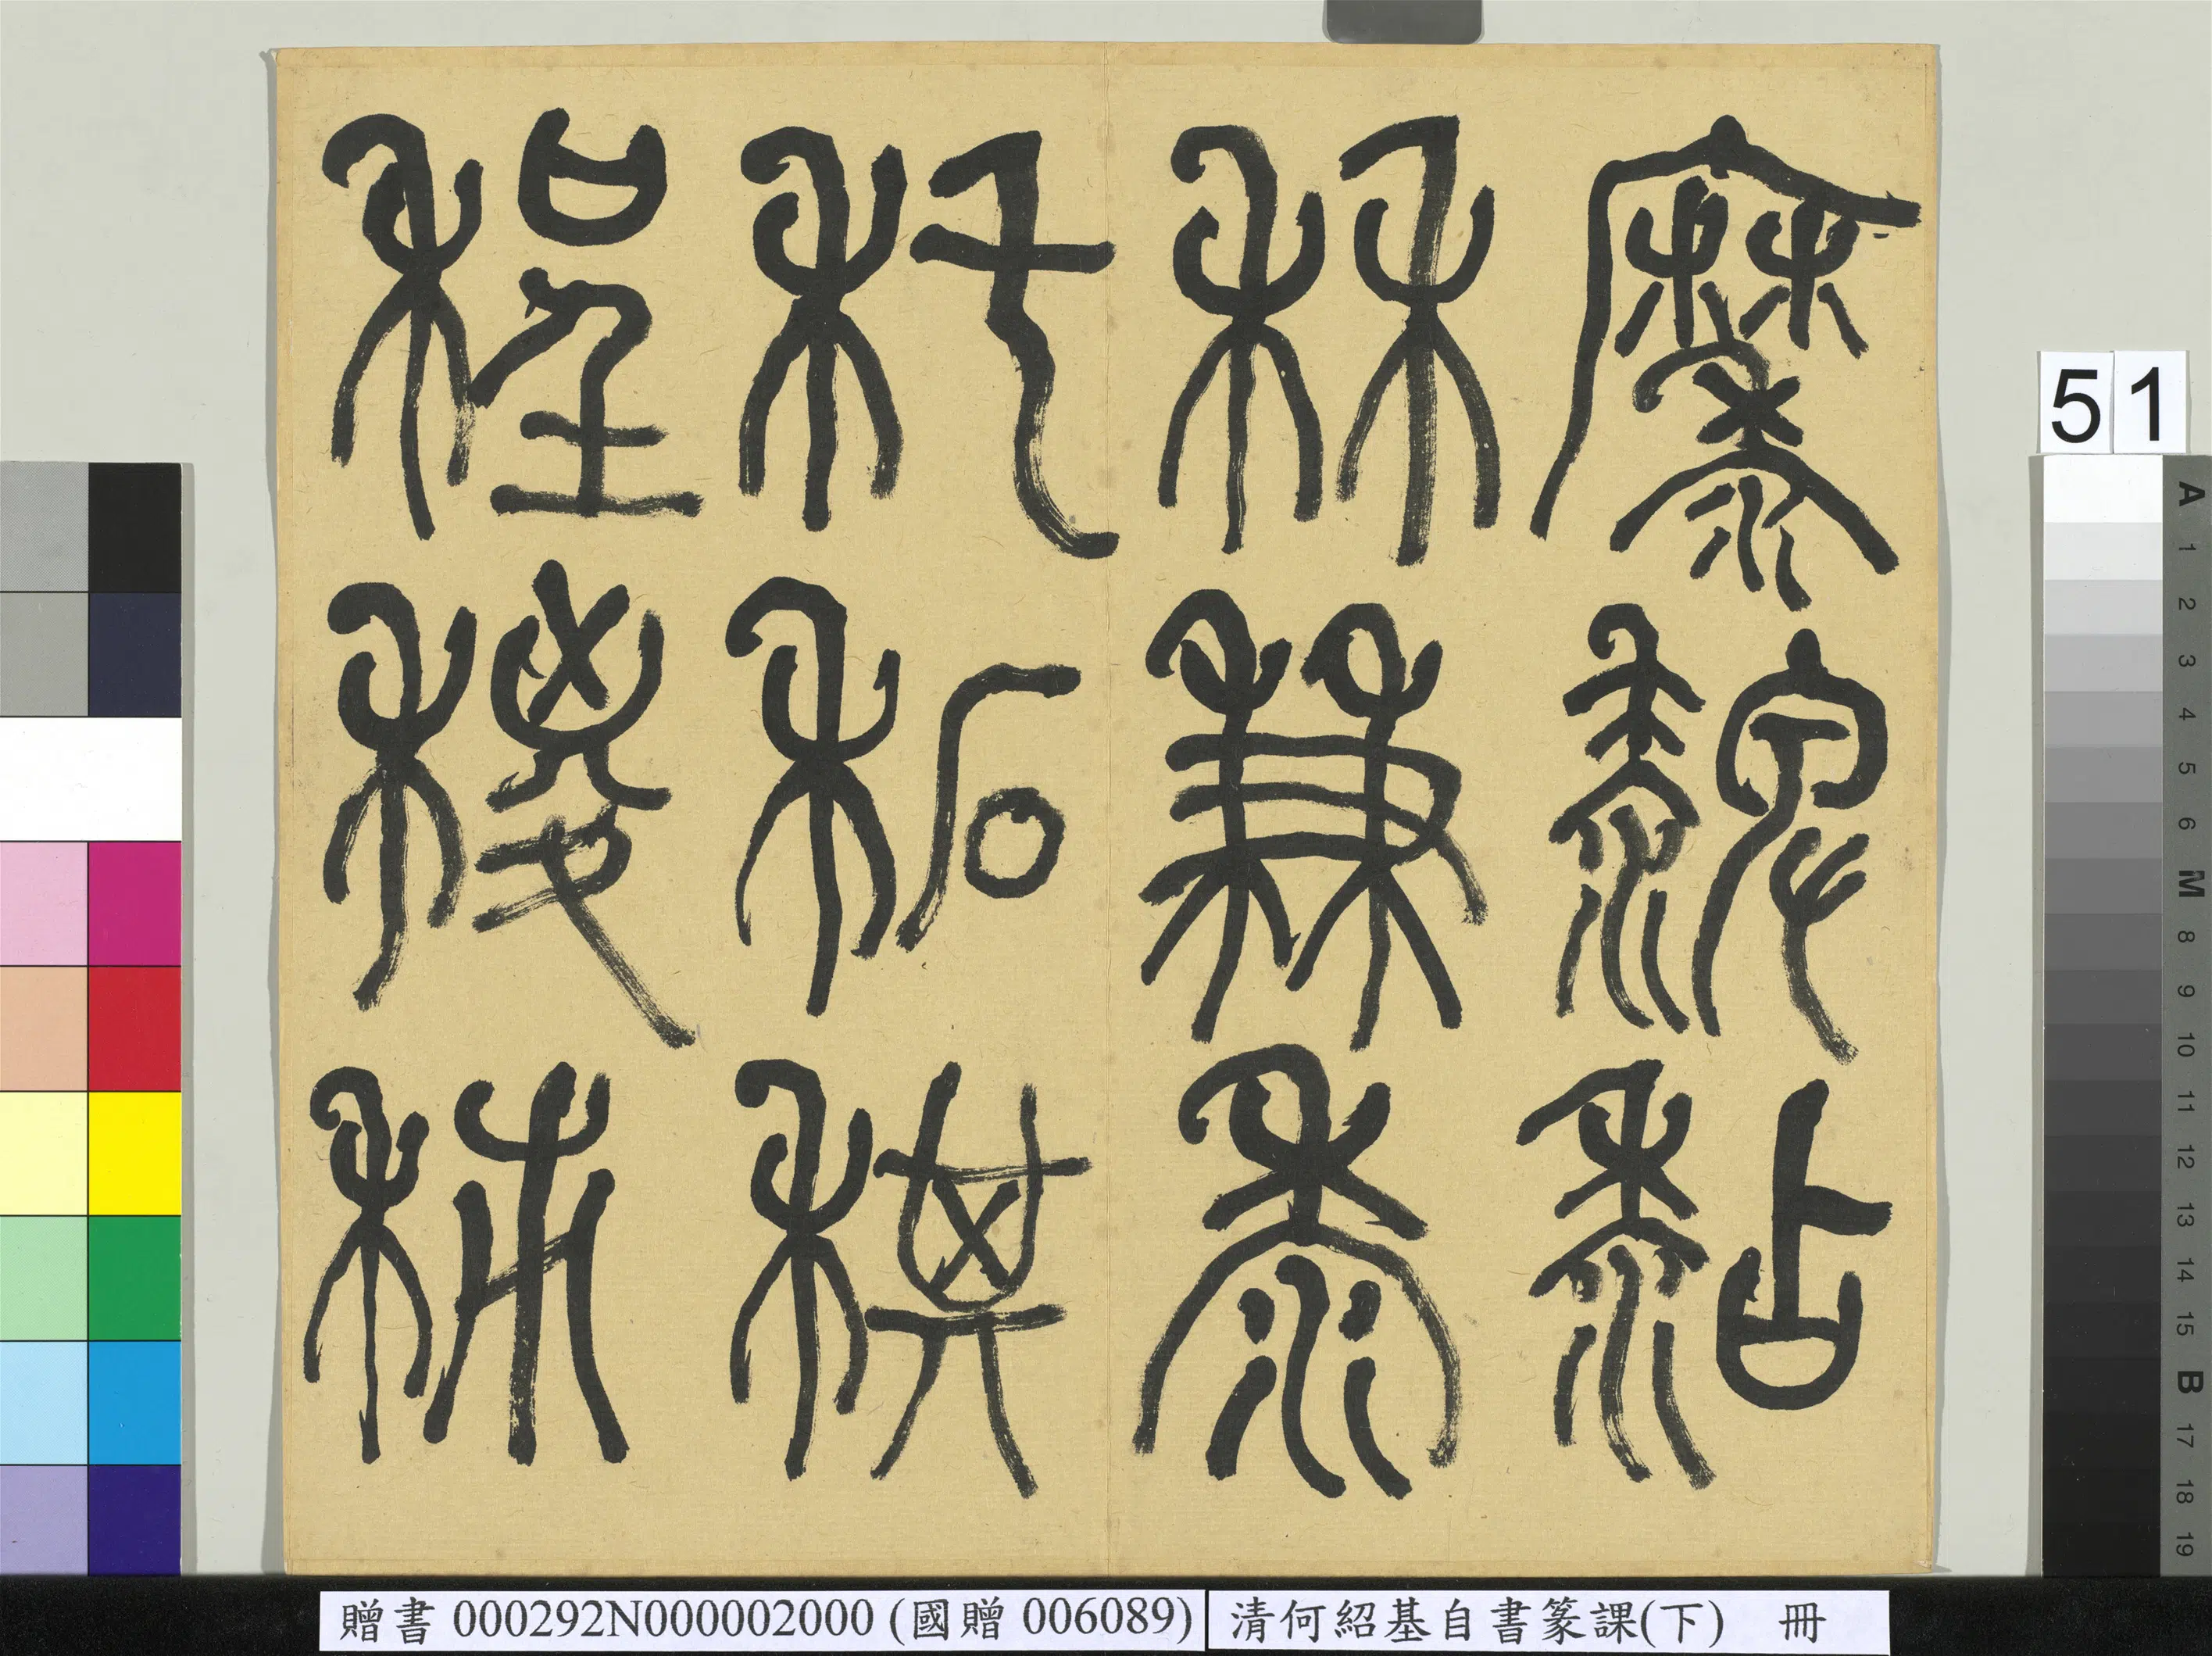 𪎭䵑黏
秝兼黍
秅䄷稘
程稯秭
51
A 1 2 3 4 5 6 M 8 9 10 11 12 13 14 15 B 17 18 19
贈書 000292N000002000 (國贈 006089)
清何紹基自書篆課(下) 冊